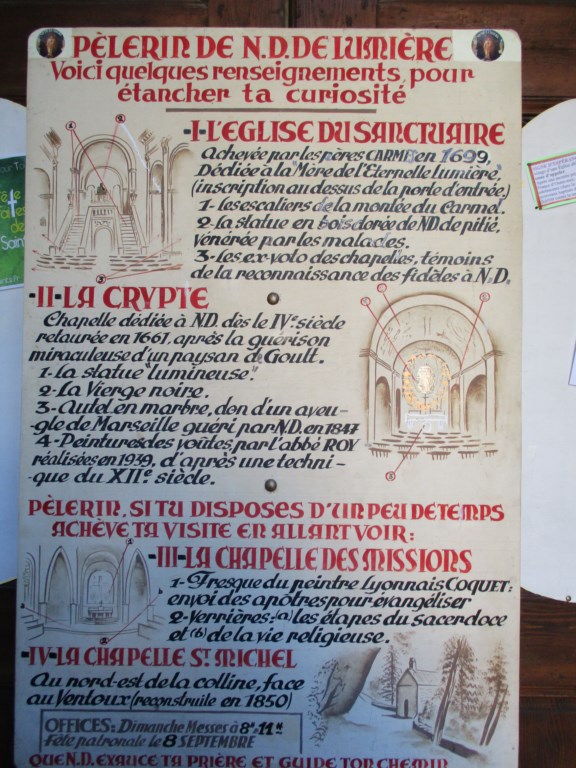 PÈLERIN DE N.D. DE LUMIÈRE
Voici quelques renseignements pour
étancher ta curiosité
-I-L'EGLISE DU SANCTUAIRE
Achevée par les pères CARMES en 1699,
Dédiée à la "Mère de l'Eternelle lumière",
(inscription au dessus de la porte d'entrée)
1- les escaliers de la montée du Carmel.
2-la statue en bois dorée de ND de pitié,
vénérée par les malades.
3-les ex-voto des chapelles, témoins
de la reconnaissance des fidèles à N.D.
-II-LA CRYPTE
Chapelle dédiée à N.D. dès le IVe siècle
relaurée en 1661, après la guérison
miraculeuse d'un paysan de Goult.
1-la statue "lumineuse."
2-La Vierge noire.
3-Autel en marbre, don d'un aveu-
-gle de Marseille guéri par N.D. en 1847
4-Peintures des voûtes, par l'abbé ROY
réalisées en 1939, d'après une techni-
-que du XIIe siècle.
PÈLERIN, SI TU DISPOSES D'UN PEU DE TEMPS
ACHÈVE TA VISITE EN ALLANT VOIR:
-III-LA CHAPELLE DES MISSIONS
1-Fresque du peintre Lyonnais COQUET:
envoi des apôtres pour évangéliser
2-Verrières: (a) les étapes du sacerdoce
et (b) de la vie religieuse.
-IV-LA CHAPELLE St MICHEL
Au nord-est de la colline, face
au Ventoux (reconstruite en 1850)
OFFICES: Dimanche Messes à 8H-11H
Fête patronale le 8 SEPTEMBRE
QUE N.D. EXAUCE TA PRIÈRE ET GUIDE TON CHEMIN